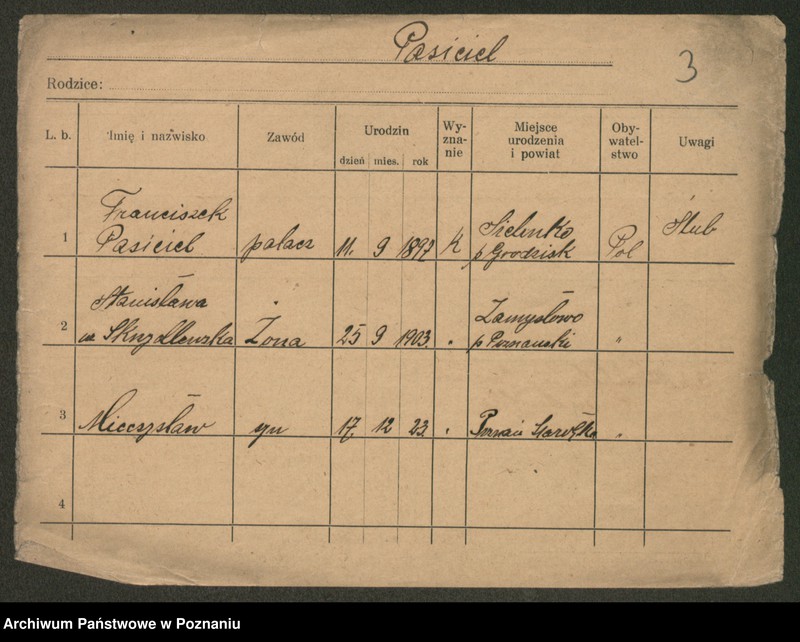 Pasiciel
3
Rodzice:
L. b. Imię i nazwisko Zawód Urodzin Wy- Miejsce Oby- Uwagi
zna- urodzenia watel-
nie i powiat stwo
dzień mies. rok
Franciszek
1 Pasiciel palacz 11. 9 1897 K Sielinko Pol Ślub
p Grodzisk
Stanisława
2 Skrzydlewska Żona 25 9 1903. " Zamysłowo "
p Poznański
3 Mieczysław syn 17. 12 23. " Poznań Starołęka "
4
Archiwum Państwowe w Poznaniu